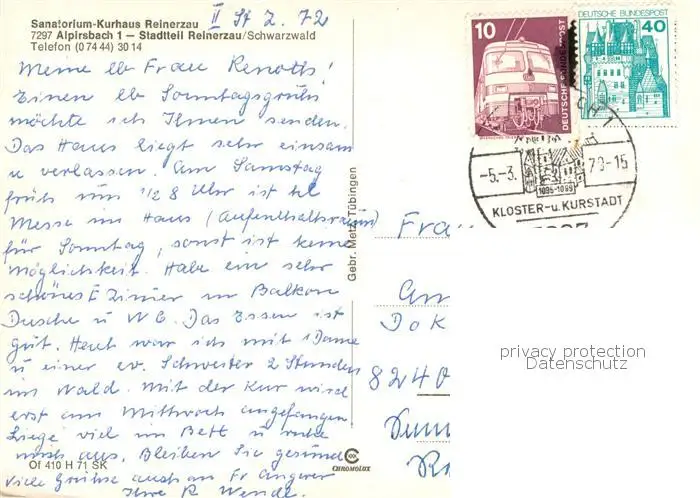 Sanatorium-Kurhaus Reinerzau
7297 Alpirsbach 1 — Stadtteil Reinerzau/Schwarzwald
Telefon (0 74 44) 30 14
II St Z. 72
Meine lb Frau Renoth!
Einen lb Sonntagsgruß
möchte ich Ihnen senden.
Das Haus liegt sehr einsam
u verlassen. Am Samstag
früh um 1/2 8 Uhr ist hl
Messe im Haus (Aufenthaltsraum)
für Sonntag, sonst ist keine
Möglichkeit. Habe ein sehr
schönes E Zimmer m Balkon
Dusche u WC. Das Essen ist
gut. Heut war ich mit 1 Dame
u einer ev. Schwester 2 Stunden
im Wald. Mit der Kur wird
erst am Mittwoch angefangen
Liege viel im Bett u ruhe
mich aus. Bleiben Sie gesund
viele Grüße auch an Fr Angerer
Ihre R Wende.
Of 410 H 71 SK
Gebr. Metz, Tübingen
CHROMOLUX
10
DEUTSCHE BUNDESPOST
DEUTSCHE BUNDESPOST
40
-5.-3.
79-15
1095-1099
KLOSTER-u. KURSTADT
Frau
Am
Dok
8240
privacy protection
Datenschutz